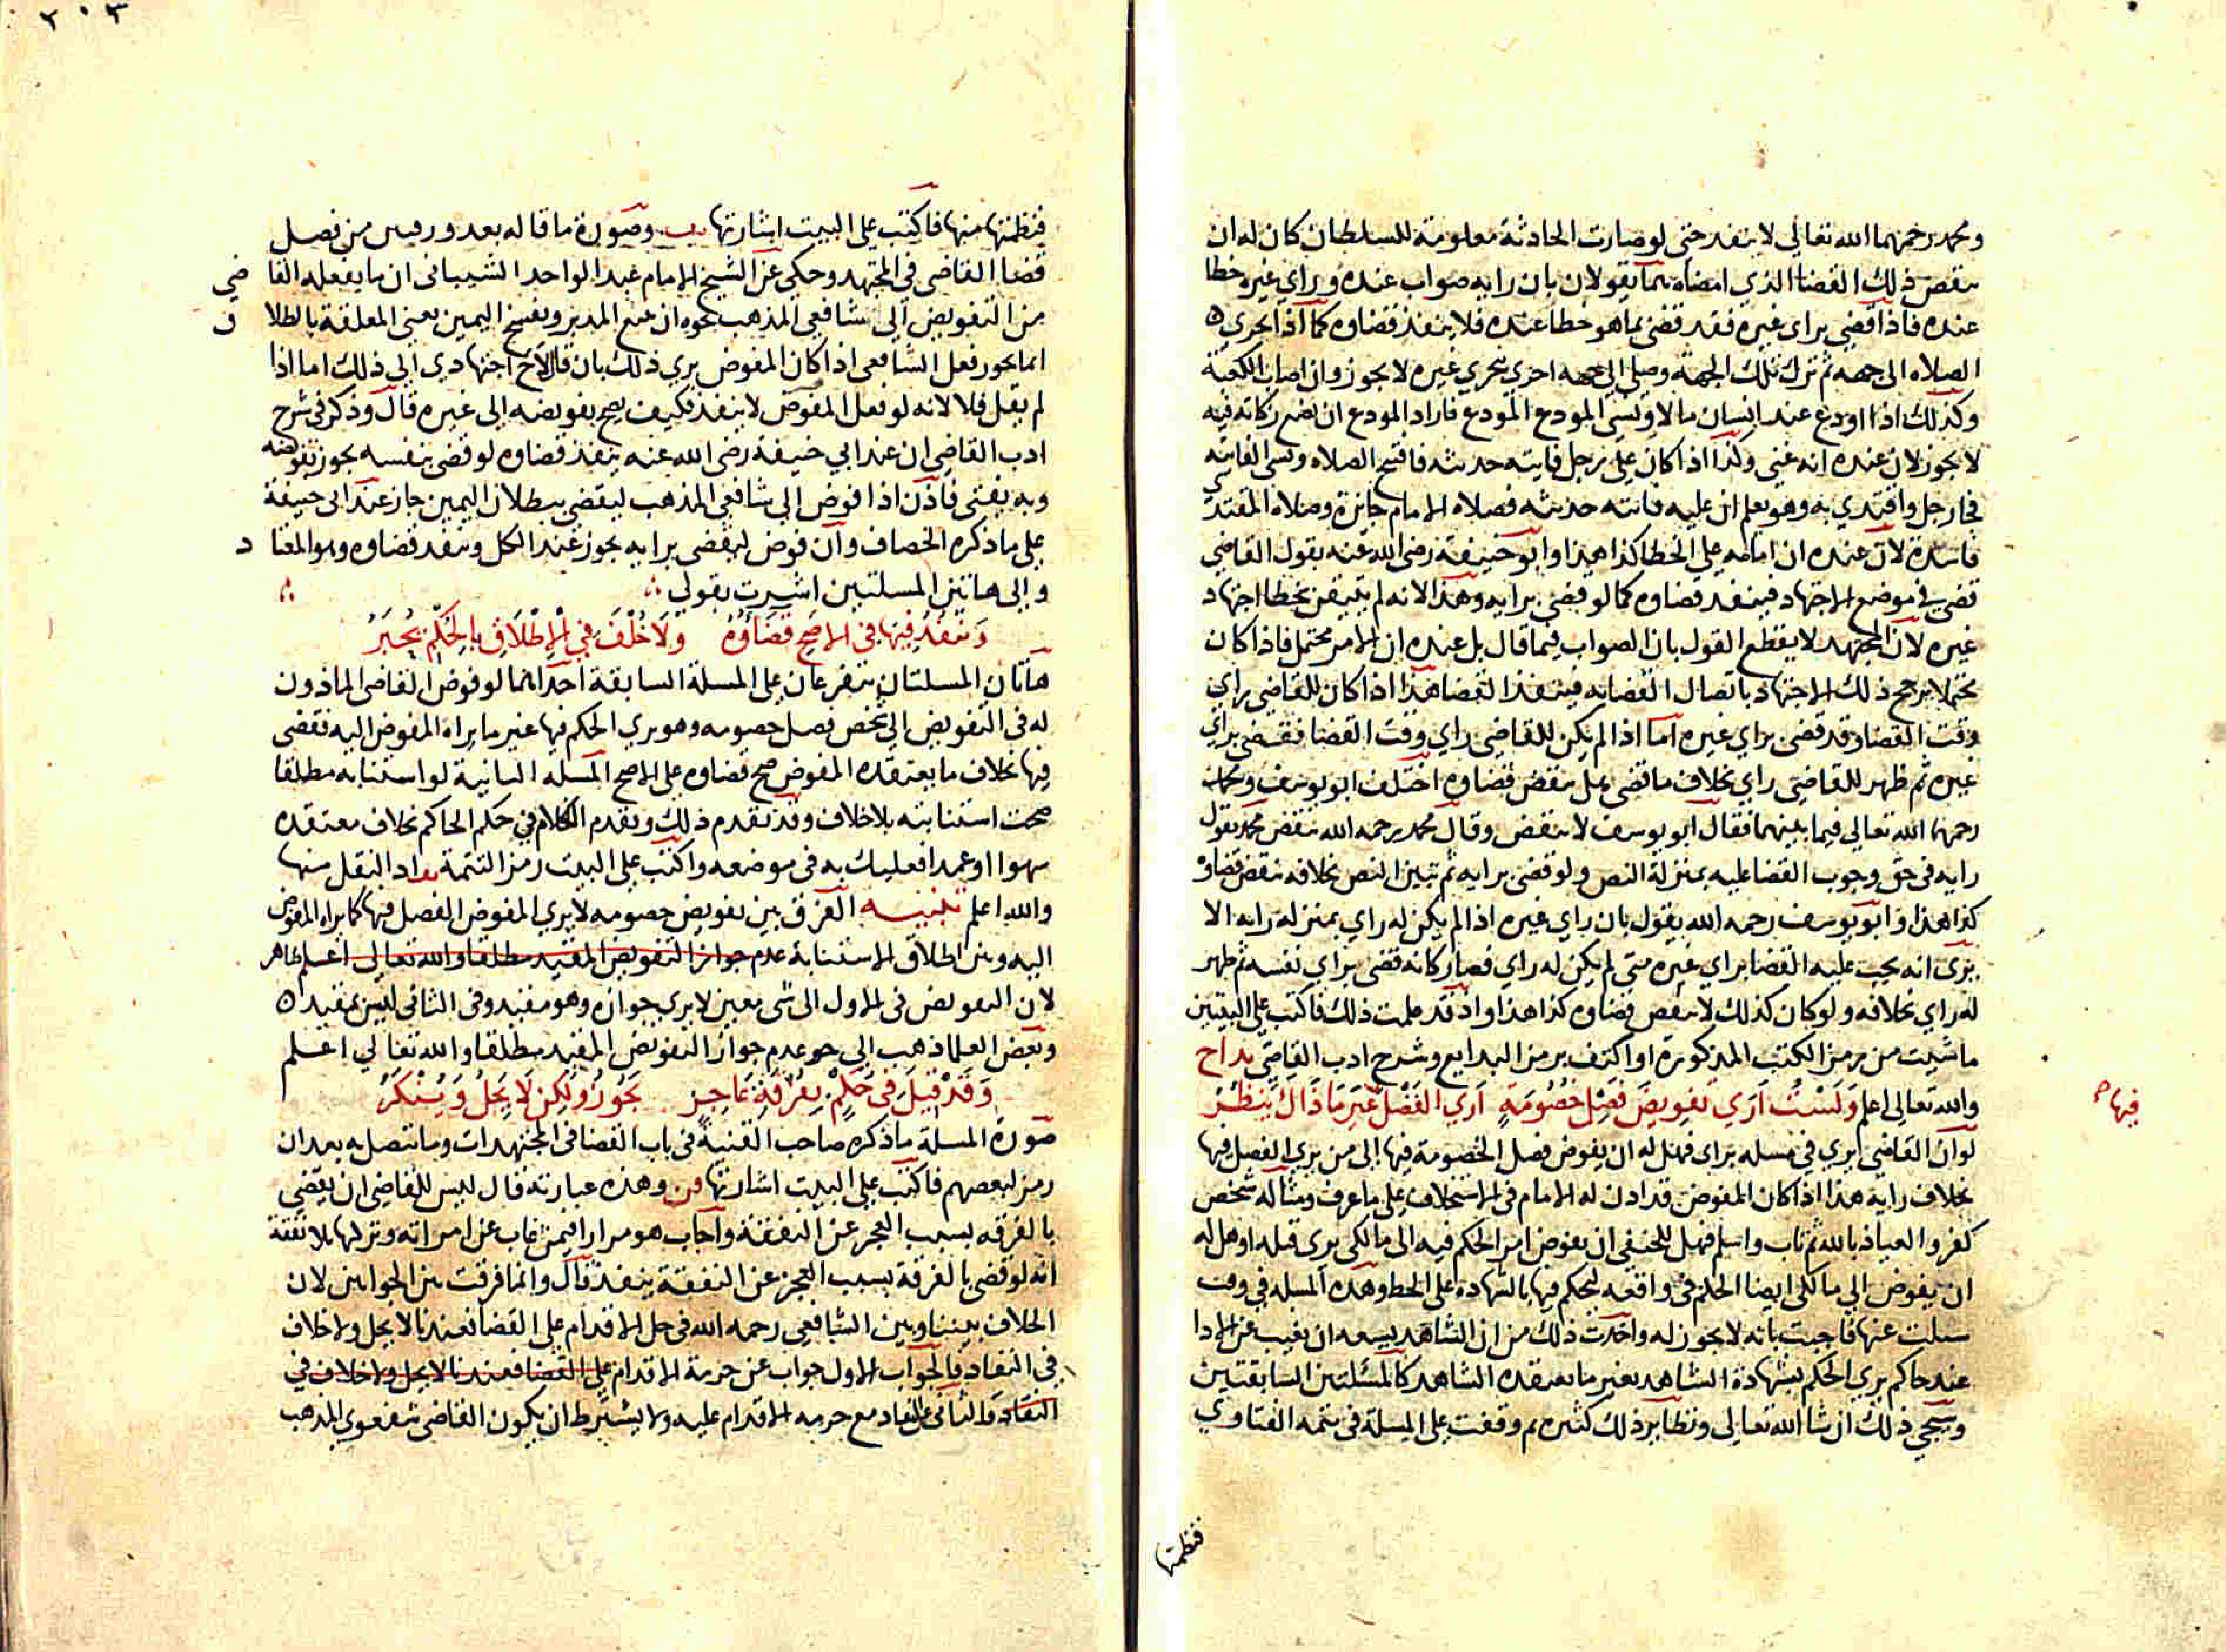 ومحمد رحمهما الله تعالى لا ينفد حتى لو صارت الحادثة معلومة للسلطان كان له ان
ينقض ذلك القضا الذي امضاه بما يقولان بان رايه صواب عنده وراي غيره خطا
عنده فاذا قضي براي غيره فقد قضي بما هو خطا عنده فلا ينفذ قضاوه كما اذا تحري
الصلاه الى جهة ثم ترك تلك الجهة وصلي الى جهه اخري بتحري غيره لا يجوز وان اصاب الكعبة
وكذلك اذا اودع عند انسان مالا ونسي المودع المودع فاراد المودع ان يضع زكاته فيه
لا يجوز لان عنده انه غني وكذا اذا كان علي رجل فايته حديثه فافتتح الصلاه ونسي الفايته
فجا رجل واقتدي به وهو يعلم ان عليه فايته حديثه فصلاه الامام جايزة وصلاه المقتدي
فاسدة لان عنده ان امامه علي الخطا كذا هذا وابو حنيفة رضي الله عنه يقول القاضي
قضي في موضع الاجتهاد فينفد قضاوه كما لو قضي برايه وهذا لانه لم يتيقن بخطا اجتهاد
غيره لان المجتهد لا يقطع القول بان الصواب فيما قال بل عنده ان الامر محتمل فاذا كان
محتملا يرجح ذلك الاجتهاد باتصال القضا به فينفذ القضا هذا اذا كان للقاضي راي
وقت القضا وقد قضي براي غيره اما اذا لم يكن للقاضي راي وقت القضا فقضي براي
غيره ثم ظهر للقاضي راي بخلاف ما قضي هل ينقض قضاوه اختلف ابو يوسف ومحمد
رحمهما الله تعالى فيما بينهما فقال ابو يوسف لا ينقض وقال محمد رحمه الله ينقض محمد يقول
رايه في حق وجوب القضا عليه بمنزلة النص ولو قضي برايه ثم تبين النص بخلافه ينقض قضاوه
كذا هذا وابو يوسف رحمه الله يقول بان راي غيره اذا لم يكن له راي بمنزله رايه الا
يرى انه يجب عليه القضا براي غيره متي لم يكن له راي فصار كانه قضي براي نفسه ثم ظهر
له راي بخلافه ولو كان كذلك لا ينقض قضاوه كذا هذا واذ قد علمت ذلك فاكتب علي البيتين
ما شيت من رمز الكتب المذكورة او اكتف برمز البدايع وشرح ادب القاضي بداح
والله تعالى اعلم وَلَسْتُ اَرَي تَفوِيضَ فَصْلِ خُصُومَةٍ اَرَي الفَصْلَ غَيرَ مَا ذَاكَ يَنظُرُ
فيها صح
لو ان القاضي يري في مسله براي فهل له ان يفوض فصل الخصومة فيها الى من يري الفصل فيها
بخلاف رايه هذا اذا كان المفوض قد اذن له الامام في الاستخلاف علي ما عرف ومثاله شخص
كفر والعياذ بالله ثم تاب واسلم فهل للحنفي ان يفوض امر الحكم فيه الى مالكي يري قتله او هل له
ان يفوض الى مالكي ايضا الحكم في واقعه ليحكم فيها بالشهادة علي الخط وهذه المسله في وقت
سيلت عنها فاجبت بانه لا يجوز له واخذت ذلك من ان الشاهد يسعه ان يغيب عن الادا
عند حاكم يري الحكم بشهادة الشاهد بغير ما يعتقده الشاهد كالمسئلتين السابقتين
وسيجي ذلك ان شا الله تعالى ونظاير ذلك كثيره ثم وقفت علي المسلة في تتمه الفتاوي
فنظمتها
٢٠٣
فنظمتها منها فاكتب علي البيت اشارتها وصورة ما قاله بعد ورقتين من فصل
قضا القاضي في المجتهد وحكي عن الشيخ الامام عبد الواحد الشيباني ان ما يفعله القاضي
من التفويض الى شافعي المذهب نحو ان بيع المدبر ويفسخ اليمين يعني المعلقة بالطلاق
انما يجوز فعل الشافعي اذا كان المفوض يري ذلك بان قال لاح اجتهادي الى ذلك اما اذا
لم يقل فلا لانه لو فعل المفوض لا ينفذ فكيف يصح تفويضه الى غيره قال وذكر في شرح
ادب القاضي ان عند ابي حنيفة رضي الله عنه ينفذ قضاوه لو قضي بنفسه يجوز تفويضه
وبه يفتي فاذن اذا فوض الى شافعي المذهب ليقضي ببطلان اليمين جاز عند ابى حنيفة
علي ما ذكره الخصاف وان فوض ليقضي برايه يجوز عند الكل وينفد قضاوه وهو المعتاد
والى هاتين المسلتين اشرت بقولي
وَيَنفُذُ فِيهَا فِي الاَصَحِّ قَضَاؤُهُ وَلَا خُلْفَ فِي الْاِطْلَاقِ بِالحُكْمِ يُجبَرُ
هاتان المسلتان يتفرعان علي المسلة السابقة احداهما لو فوض القاضي الماذون
له في التفويض الى شخص فصل خصومه وهو يري الحكم فيها غير ما يراه المفوض اليه فقضي
فيها بخلاف ما يعتقده المفوض صح قضاوه علي الاصح المسله الثانية لو استنابه مطلقا
صحت استنابته بلا خلاف وقد تقدم ذلك وتقدم الكلام في حكم الحاكم بخلاف معتقده
سهوا او عمدا فعليك به في موضعه واكتب علي البيت رمز التتمة اد النقل منها
والله اعلم تنبيه الفرق بين تفويض خصومه لا يري المفوض الفصل فيها كما يراه المفوض
اليه وبين اطلاق الاستنابة عدم جواز التفويض المقيد مطلقا والله تعالى اعلم ظاهر
لان التفويض في الاول الى شي معين لا يري جوازه وهو مقيد وفي الثاني ليس بمقيد
وبعض العلما ذهب الى نحو عدم جواز التفويض المقيد مطلقا والله تعالى اعلم
وَقَدْ قِيلَ فِي حُكْمٍ بِفُرْقَةِ عَاجِزٍ يَجُوزُ وَلَكِن لَا يَحِلُّ وَيُنْكَرُ
صورة المسلة ما ذكره صاحب القنية في باب القضا في المجتهدات وما تتصل به بعد ان
رمز لبعضهم فاكتب علي البيت اشارتها وهذه عبارته قال ليس للقاضي ان يقضي
بالفرقه بسبب العجز عن النفقة واجاب هو مرارا فيمن غاب عن امراته وتركها بلا نفقة
انه لو قضي بالفرقة بسبب العجز عن النفقة ينفذ قال وانما فرقت بين الجوابين لان
الخلاف بيننا وبين الشافعي رحمه الله في حل الاقدام علي القضا فعندنا لا يحل ولا خلاف
في النفاد فالجواب الاول جواب عن حرمة الاقدام علي القضا فعندنا لا يحل ولا خلاف في
النفاد والثاني عن النفاد مع حرمه الاقدام عليه ولا يشترط ان يكون القاضي شفعوي المذهب